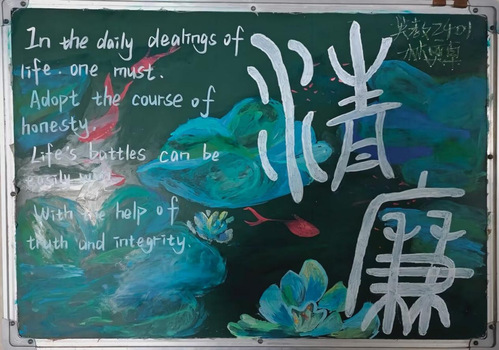 In the daily dealings of
life. one must.
Adopt the course of
honesty.
Life's battles can be
easily
With the help of
truth and integrity.
清廉